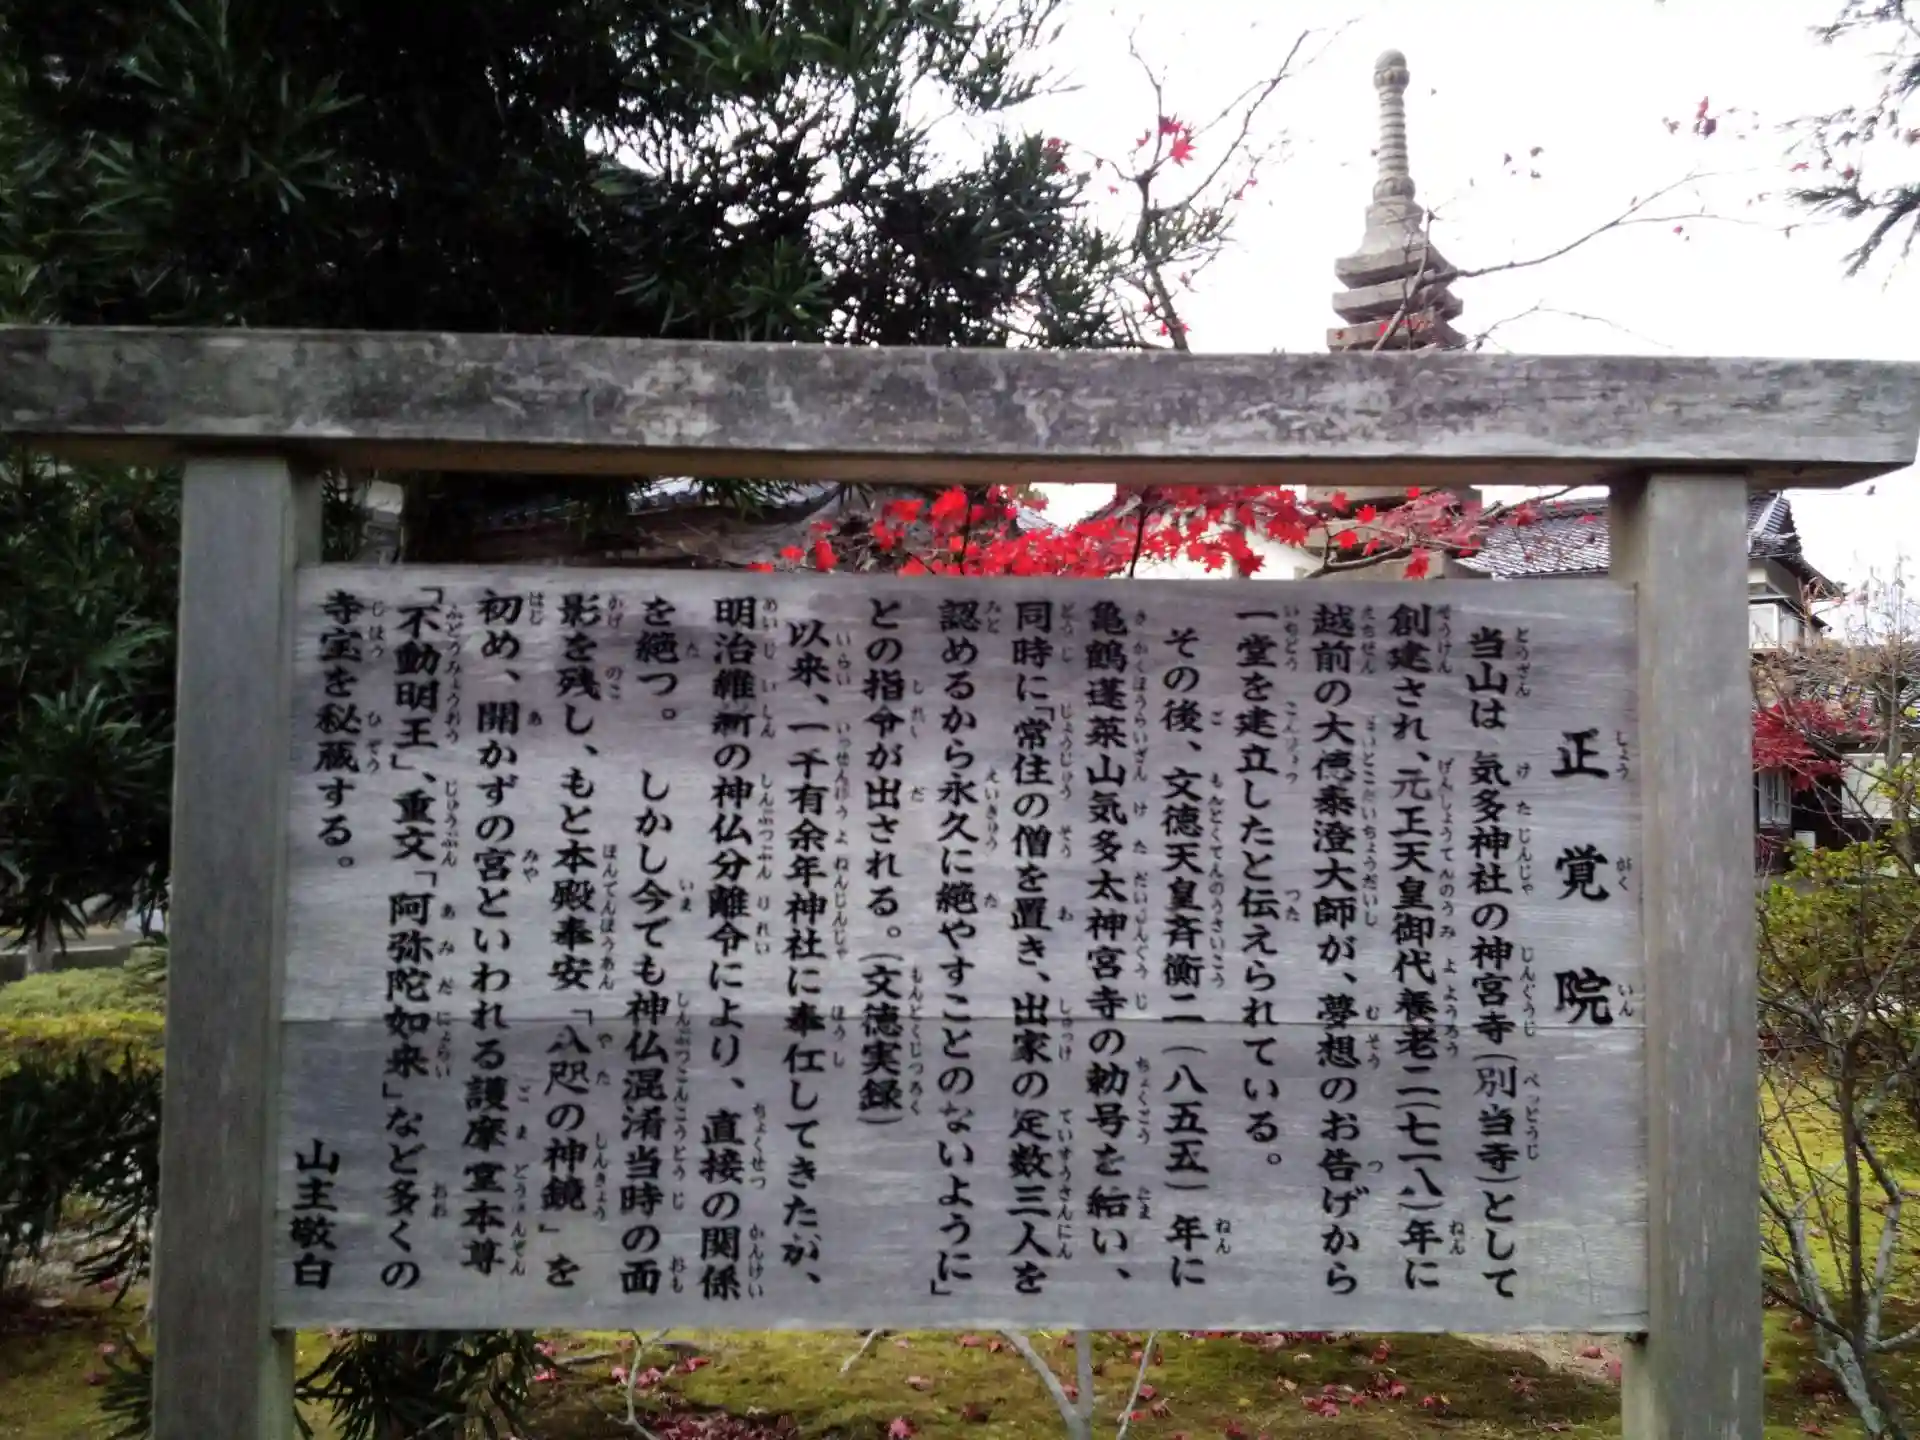 正覚院
当山は、気多神社の神宮寺(別当寺)として
創建され、元正天皇御代養老二(七一八)年に
越前の大徳泰澄大師が、夢想のお告げから
一堂を建立したと伝えられている。
その後、文徳天皇斉衡二(八五五)年に
亀鶴蓬莱山気多太神宮寺の勅号を給い、
同時に「常住の僧を置き、出家の定数三人を
認めるから永久に絶やすことのないように」
との指令が出される。(文徳実録)
以来、一千有余年神社に奉仕してきたが、
明治維新の神仏分離令により、直接の関係
を絶つ。 しかし今でも神仏混淆当時の面
影を残し、もと本殿奉安「八咫の神鏡」を
初め、開かずの宮といわれる護摩堂本尊
「不動明王」、重文「阿弥陀如来」など多くの
寺宝を秘蔵する。
山主敬白